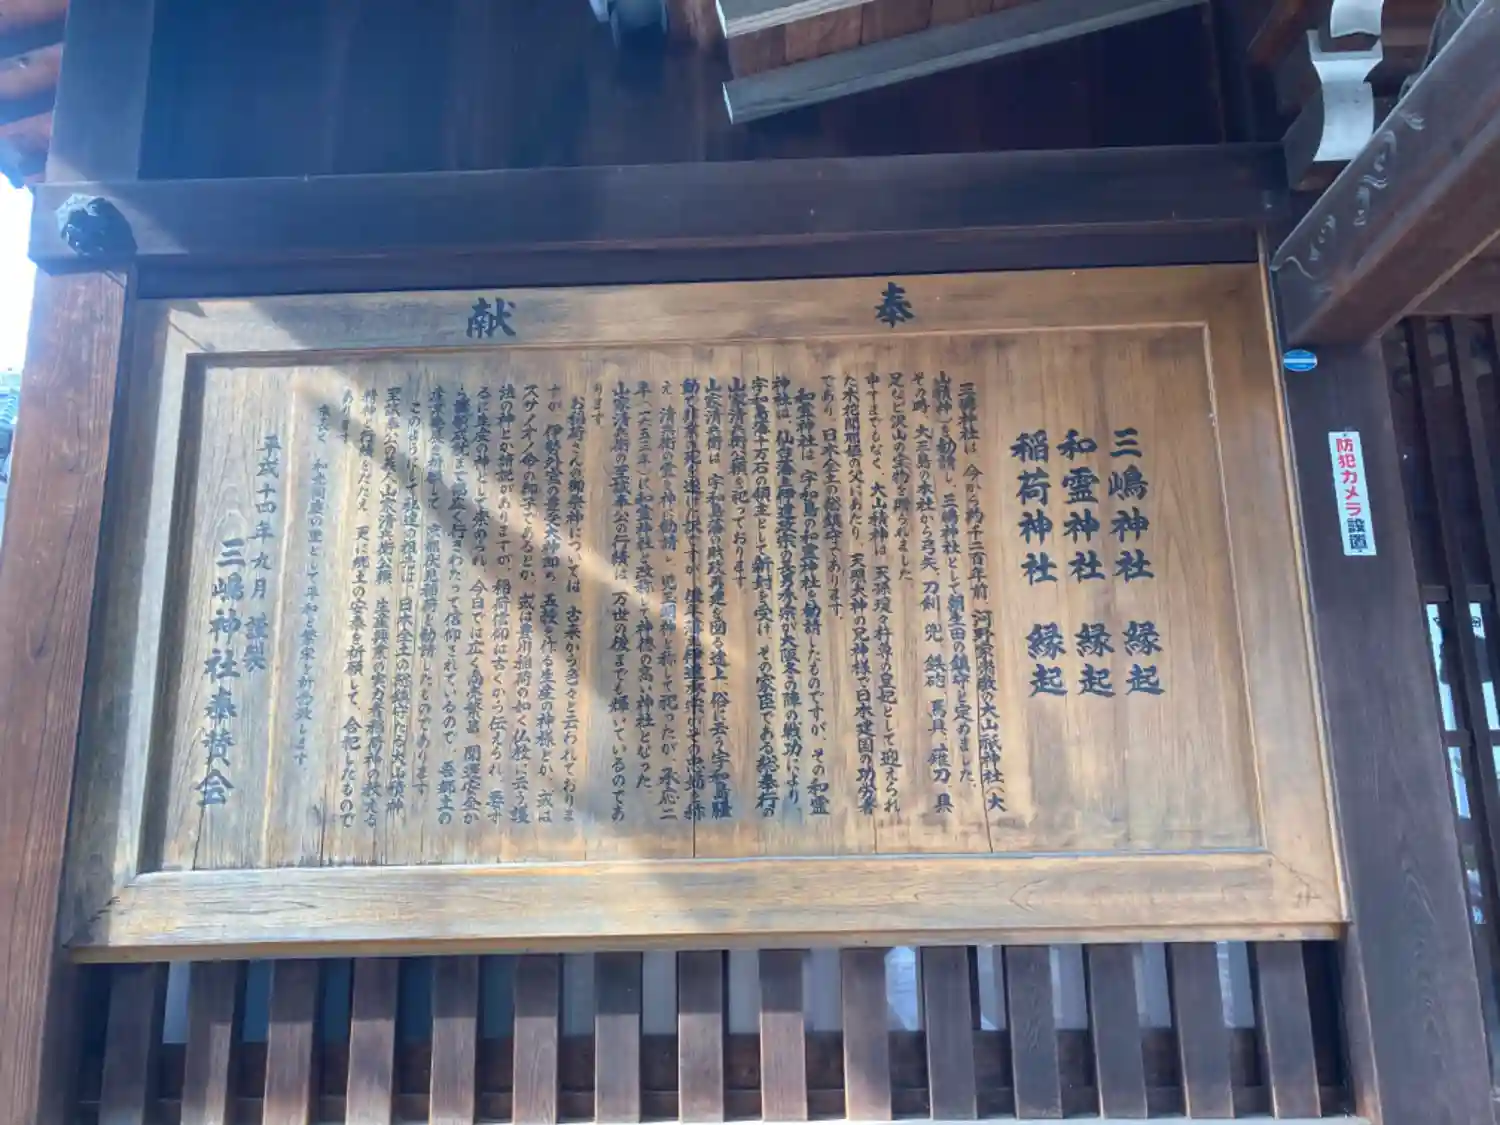 奉献
三嶋神社 縁起
和霊神社 縁起
稲荷神社 縁起
三嶋神社は、今から約千二百年前、河野家崇敬の大山祇神社(大
山積神)を勧請し、三嶋神社として朝生田の鎮守と定めました。
その時、大三島の本社から弓矢、刀剣、兜、鉄砲、馬具、薙刀、具
足など沢山の宝物を賜られました。
申すまでもなく、大山積神は、天孫瓊々杵尊の皇妃として迎えられ
た木花開耶姫の父にあたり、天照大神の兄神様で日本建国の功労者
であり、日本全土の総鎮守であります。
和霊神社は、宇和島の和霊神社を勧請したものですが、その和霊
神社は、仙台藩主伊達政宗の長男秀宗が大阪冬の陣の戦功により、
宇和島藩十万石の領主として新封を受け、その家臣である総奉行の
山家清兵衛公頼を祀っております。
山家清兵衛は、宇和島藩の財政再建を図る途上、俗に云う宇和島騒
動で非業な死を遂げた訳ですが、後年藩主伊達秀宗がその忠節を称
え、清兵衛の霊を神に勧請し、児玉明神と称して祀ったが、承応二
年(一六五三年)に和霊神社と改称して神徳の高い神社となった。
山家清兵衛の至誠奉公の行績は、万世の後までも輝いているのであ
ります。
お稲荷さんの御祭神については、古来から色々と云われておりま
すが、伊勢外宮の豊受大神即ち、五穀を作る生産の神様とか、或は
スサノオノ命の御子であるとか、或は豊川稲荷の如く仏教に云う護
法の神とか諸説がありますが、稲荷信仰は古くから伝えられ、要す
るに生産の神として崇められ、今日では広く商売繁昌、開運安全か
ら諸願成就まで幅広く行きわたって信仰されているので、吾郷土の
京都伏見稲荷を勧請したものであります。
このようにして私達の祖先は、日本全土の総鎮守たる大山積神
至誠奉公の教人山家清兵衛公頼、生産興業の実力者稲荷神の教える
精神と行績をたたえ、更に郷土の安泰を祈願して、合祀したもので
あります。
平和と繁栄を祈念致します。
平成十四年九月 謹製
三嶋神社奉賛会
防犯カメラ設置